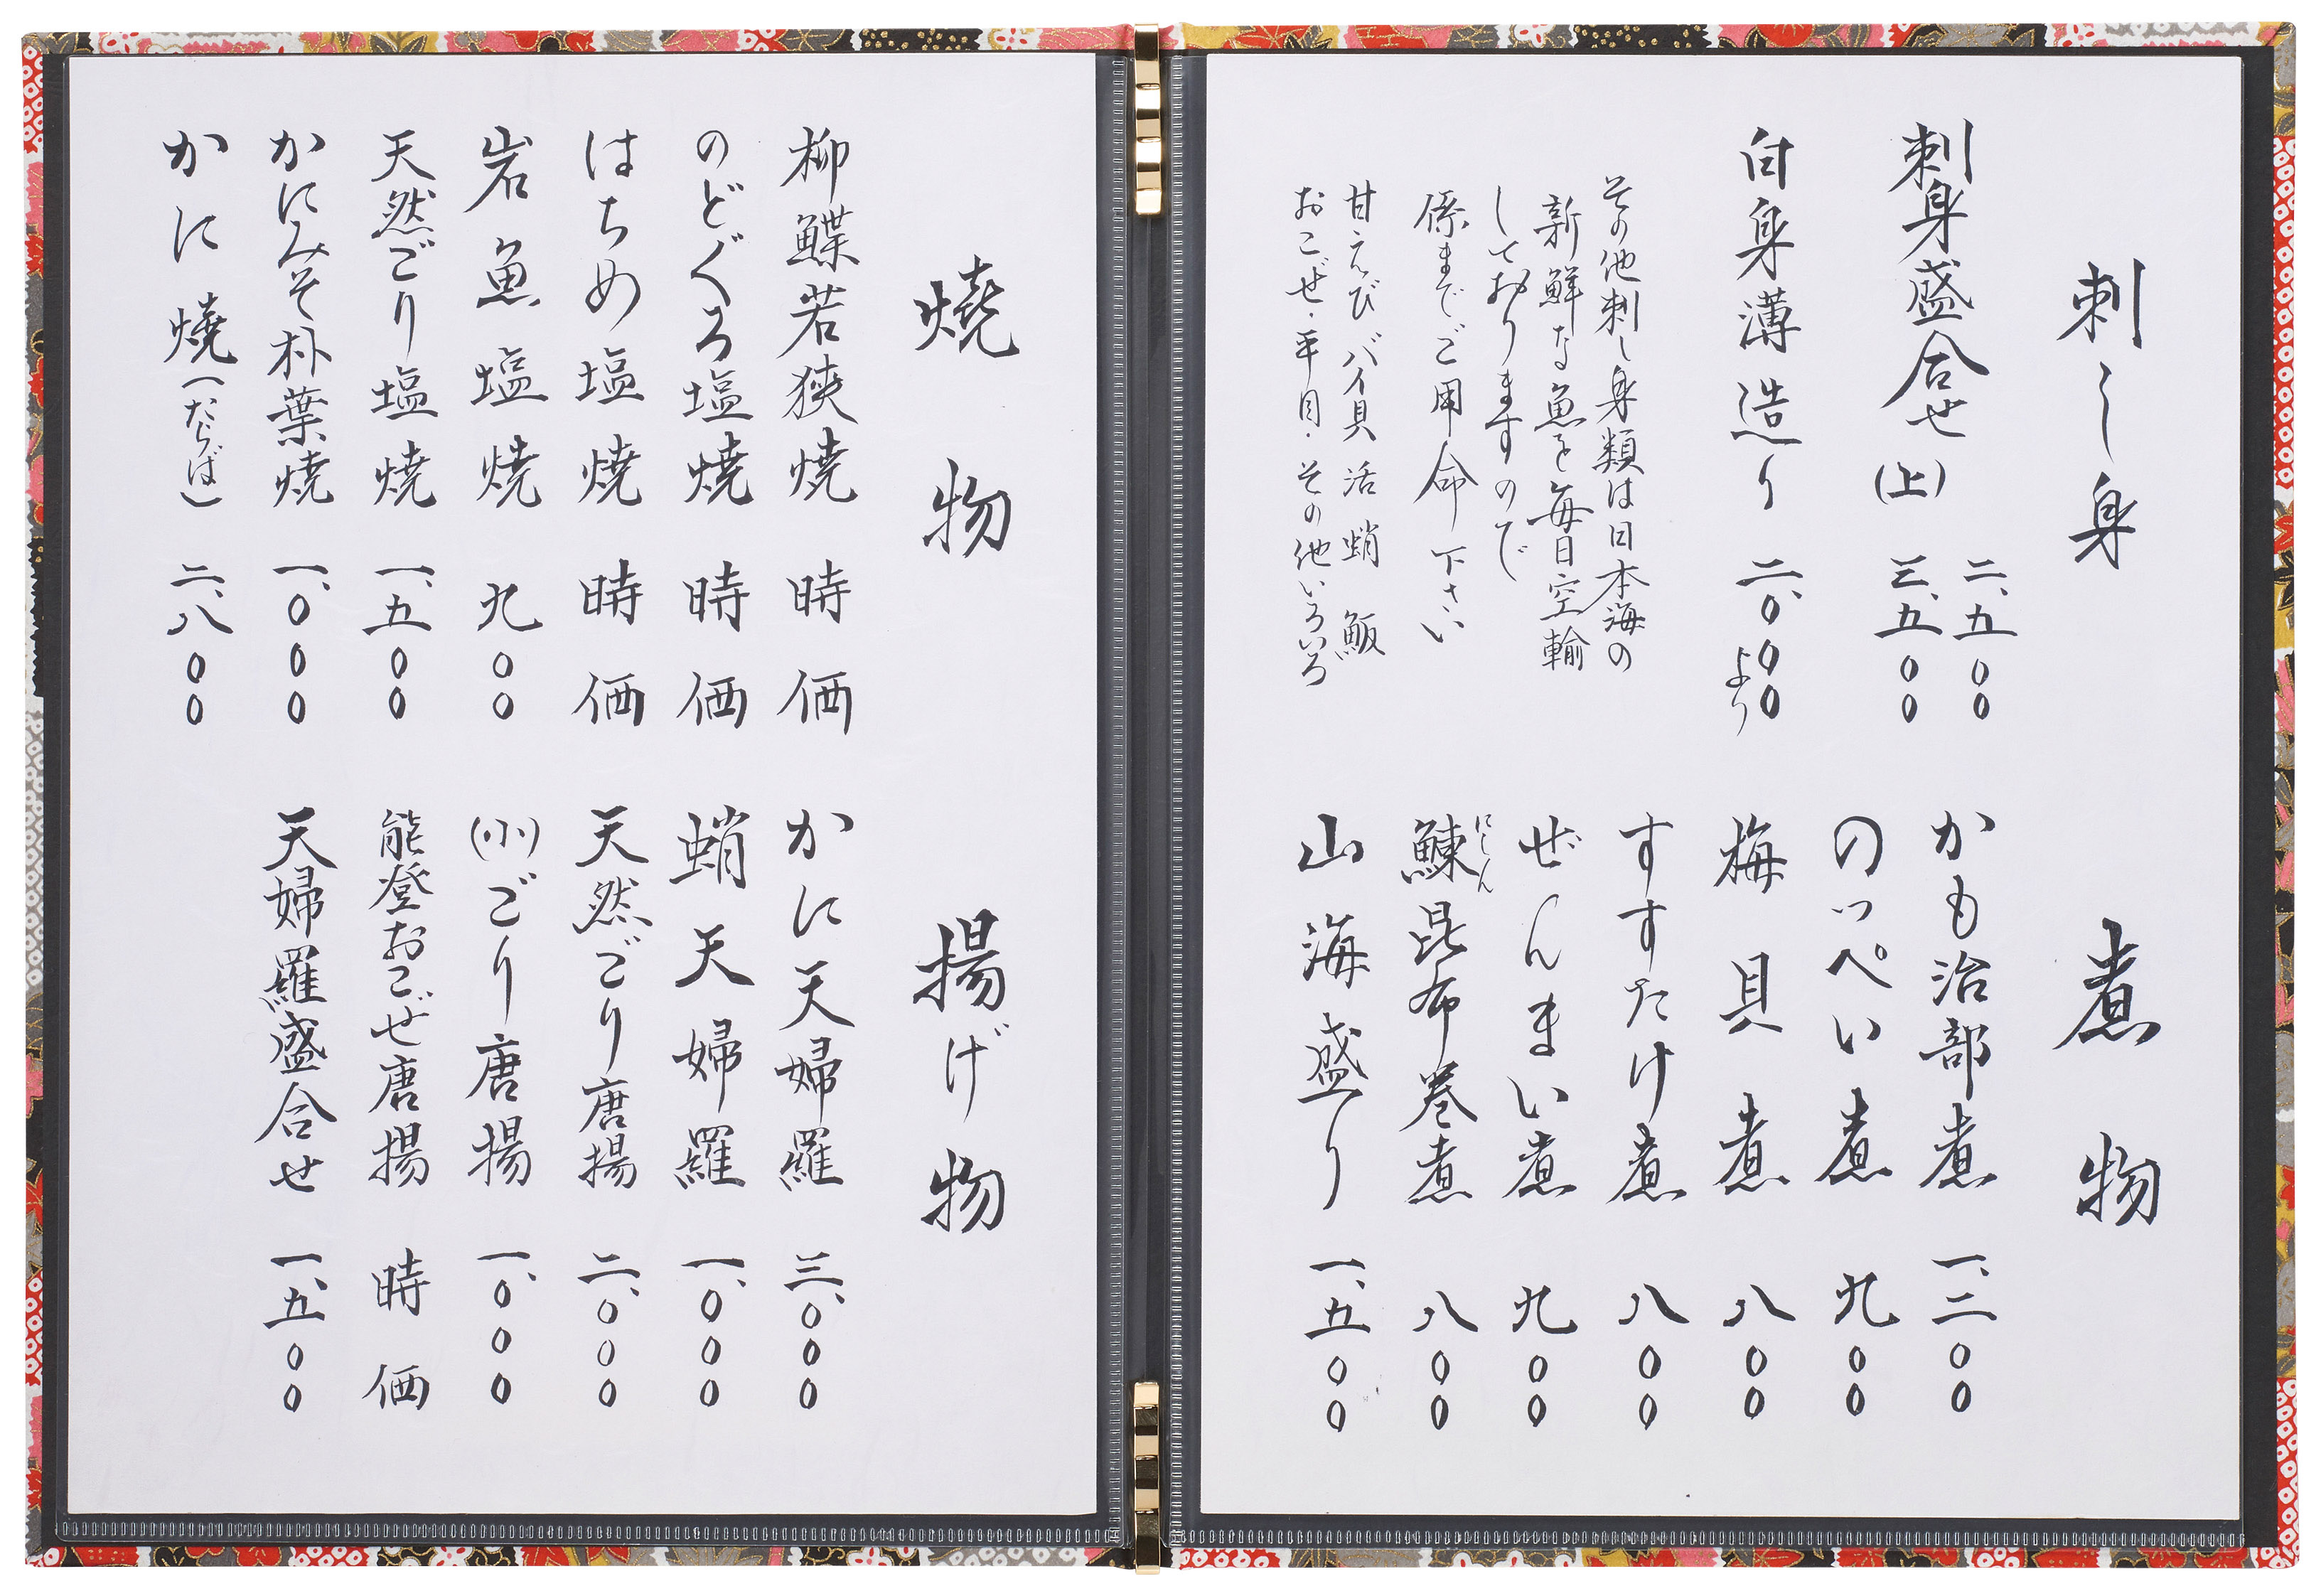 刺し身
刺身盛合せ 二、五〇〇
(上) 三、五〇〇
白身薄造り 二、〇〇〇より
その他刺し身類は日本海の
新鮮な魚を毎日空輸
しておりますので
係までご用命下さい
甘えび バイ貝 活蛸 鰒
おこぜ・平目・その他いろいろ
煮物
かも治部煮 一、二〇〇
のっぺい煮 九〇〇
梅貝煮 八〇〇
すすたけ煮 八〇〇
ぜんまい煮 九〇〇
にしん
鰊昆布巻煮 八〇〇
山海盛り 一、五〇〇
焼物
柳鰈若狭焼 時価
のどぐろ塩焼 時価
はちめ塩焼 時価
岩魚塩焼 九〇〇
天然ごり塩焼 一、五〇〇
かにみそ朴葉焼 一、〇〇〇
かに焼(たらば) 二、八〇〇
揚げ物
かに天婦羅 三、〇〇〇
蛸天婦羅 一、〇〇〇
天然ごり唐揚 二、〇〇〇
(小)ごり唐揚 一、〇〇〇
能登おこぜ唐揚 時価
天婦羅盛合せ 一、五〇〇